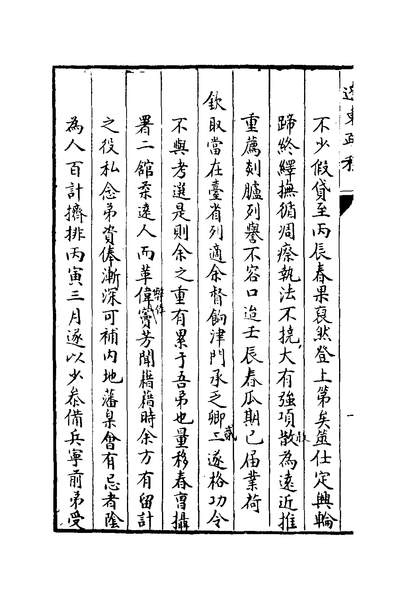 遼東疏稿
不少假貸至丙辰春果裒然登上第矣筮仕定興輪
蹄終繹撫循凋瘵執法不撓大有強項散為遠近推
重薦剡臚列譽不容口迨壬辰春瓜期已届業荷
欽取當在臺省列適余督餉津門承乏卿二遂格功令
貳
不與考選是則余之重有累于吾弟也量移春曹攝
署二館柔遠人而革偉竇芳聞籍籍時余方有留計
弊
之役私念弟資俸漸深可補内地藩臬會有忌者陰
為人百計擠排丙寅三月遂以少叅備兵寧前弟受